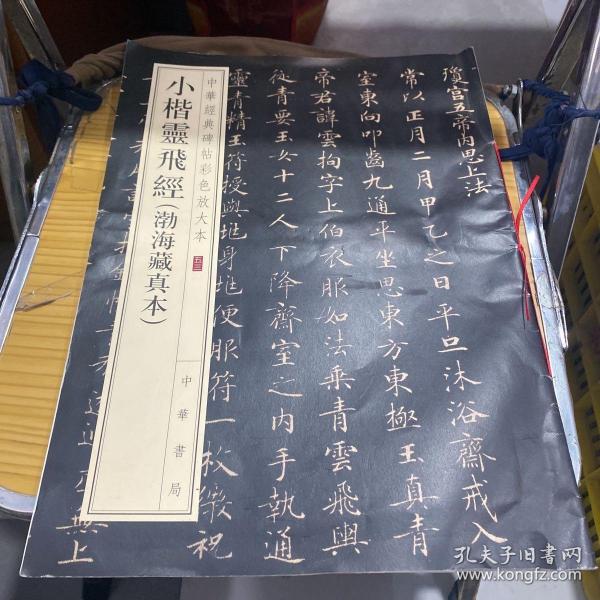 瓊宫五帝內思上法
常以正月二月甲乙之日平旦沐浴齋戒入
室東向叩齒九通平坐思東方東極玉真青
帝君諱雲拘字上伯衣服如法乗青雲飛輿
從青要玉女十二人下降齋室之内手執通
靈青精玉符授與地身地便服符一枚微祝
中華經典碑帖彩色放大本
五三
小楷靈飛經(渤海藏真本)
中華書局
無上
孔夫子旧書网
www.kongfz.com